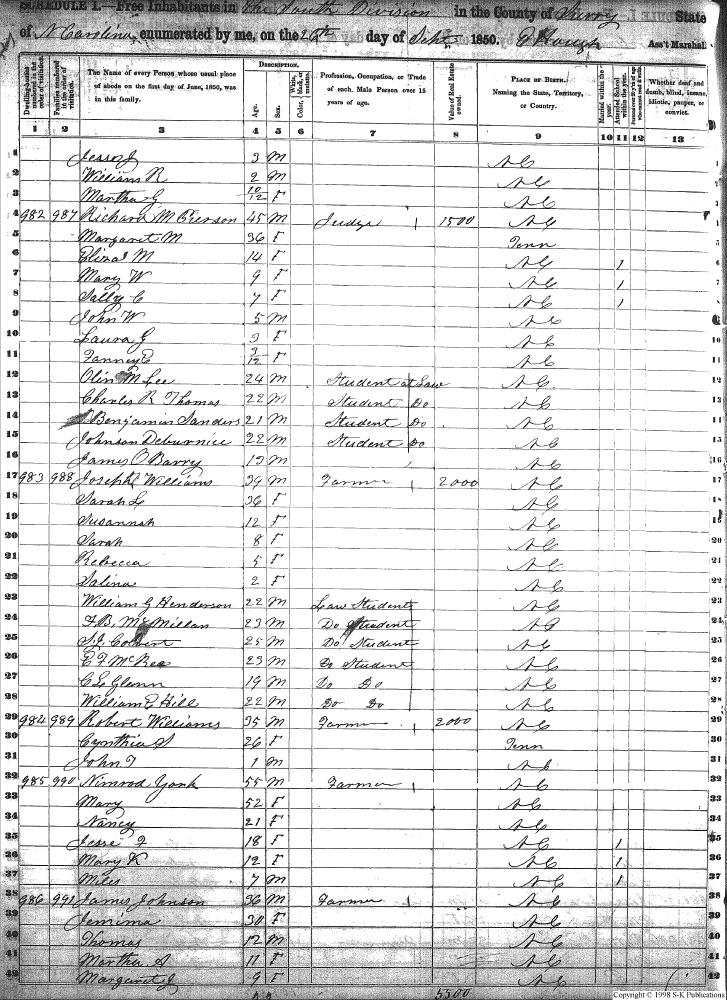 SCHEDULE I.—Free Inhabitants in the South Division in the County of Surry State
of N Carolina enumerated by me, on the 26th day of Sept 1850. Ass't Marshal.
Dwelling-houses numbered in the order of visitation.
Families numbered in the order of visitation.
The Name of every Person whose usual place of abode on the first day of June, 1850, was in this family.
DESCRIPTION.
Age.
Sex.
White, black, or mulatto.
Color,
Profession, Occupation, or Trade of each Male Person over 15 years of age.
Value of Real Estate owned.
PLACE OF BIRTH. Naming the State, Territory, or Country.
Married within the year.
Attended School within the year.
Whether deaf and dumb, blind, insane, idiotic, pauper, or convict.
1 2 3 4 5 6 7 8 9 10 11 12 13
1 Jesse J 3 M N C 1
2 William R 2 M N C 2
3 Martha G 10/12 F N C 3
4 982 987 Richard M Pierson 45 M Judge 1 1500 N C
5 Margaret M 36 F Tenn 5
6 Elizal M 14 F N C 1 6
7 Mary W 9 F N C 1 7
8 Sally C 7 F N C 1 8
9 John W 5 M N C
10 Laura G 3 F N C 10
11 Fanney E 3/12 F N C 11
12 Olin M Lee 24 M Student at Law N C 12
13 Charles R Thomas 22 M Student Do N C 13
14 Benjamin Sanders 21 M Student Do N C 14
15 Johnson Deburnice 22 M Student Do N C 15
16 James O Barry 13 M N C 16
17 983 988 Joseph Williams 39 M Farmer 1 2000 N C 17
18 Sarah L 36 F N C 18
19 Susannah 12 F N C 19
20 Sarah 8 F N C 20
21 Rebecca 5 F N C 21
22 Salina 2 F N C 22
23 William G Henderson 22 M Law Student N C 23
24 F B McMillan 23 M Do Student N C 24
25 S J Colvert 25 M Do Student N C 25
26 E F McRee 23 M Do Student N C 26
27 C L Glenn 19 M Do Do N C 27
28 William P Hill 22 M Do Do N C 28
29 984 989 Robert Williams 35 M Farmer 2000 N C 29
30 Cynthia S 26 F Tenn 30
31 John T 1 M N C 31
32 985 990 Nimrod York 55 M Farmer 1 N C 32
33 Mary 52 F N C 33
34 Nancy 21 F N C 34
35 Jesse F 18 F N C 1 35
36 Mary K 12 F N C 1 36
37 Miles 7 M N C 1 37
38 986 991 James Johnson 36 M Farmer 1 N C 38
39 Jemima 30 F N C 39
40 Thomas 12 M N C 40
41 Martha A 11 F N C 41
42 Margaret J 9 F N C 42
5500
Copyright © 1998 S-K Publications